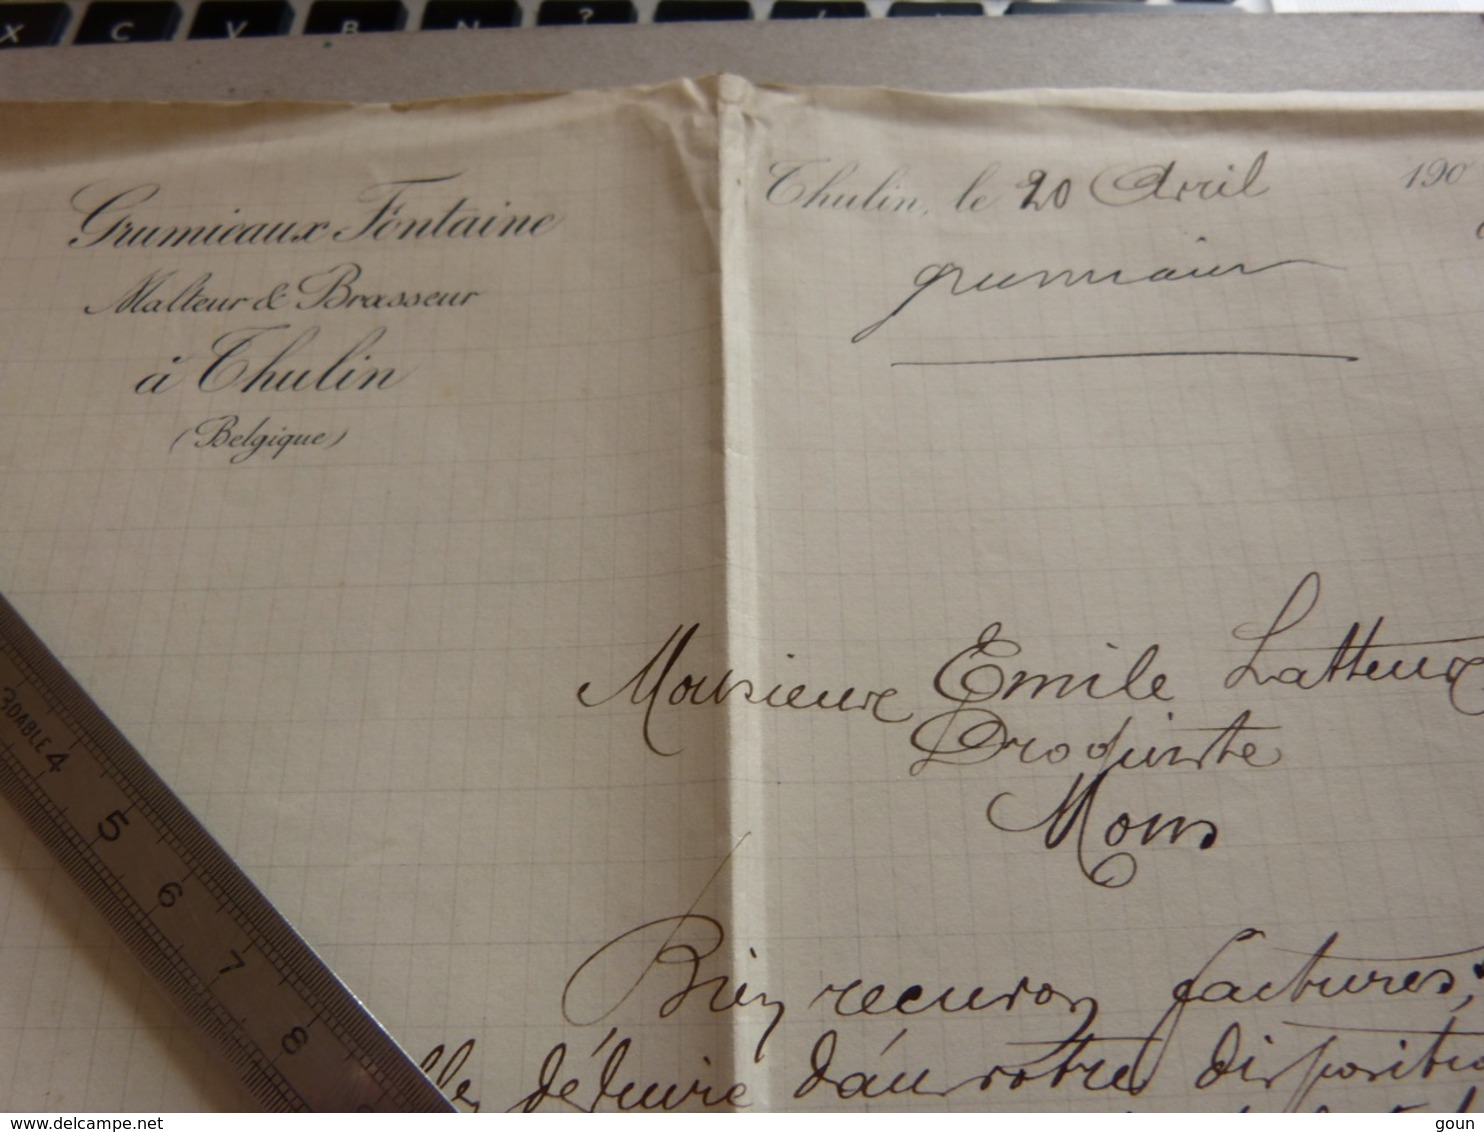 X C V B N ?
Grumieaux-Fontaine
Malteur & Brasseur
à Thulin
(Belgique)
Thulin, le 20 Avril 190
Monsieur Emile Latteur
Droguiste
Mons
Bien recu vos factures,
déduire dans votre dispositio
3DABLE 4 5 6 7 8
delcampe.net
goun